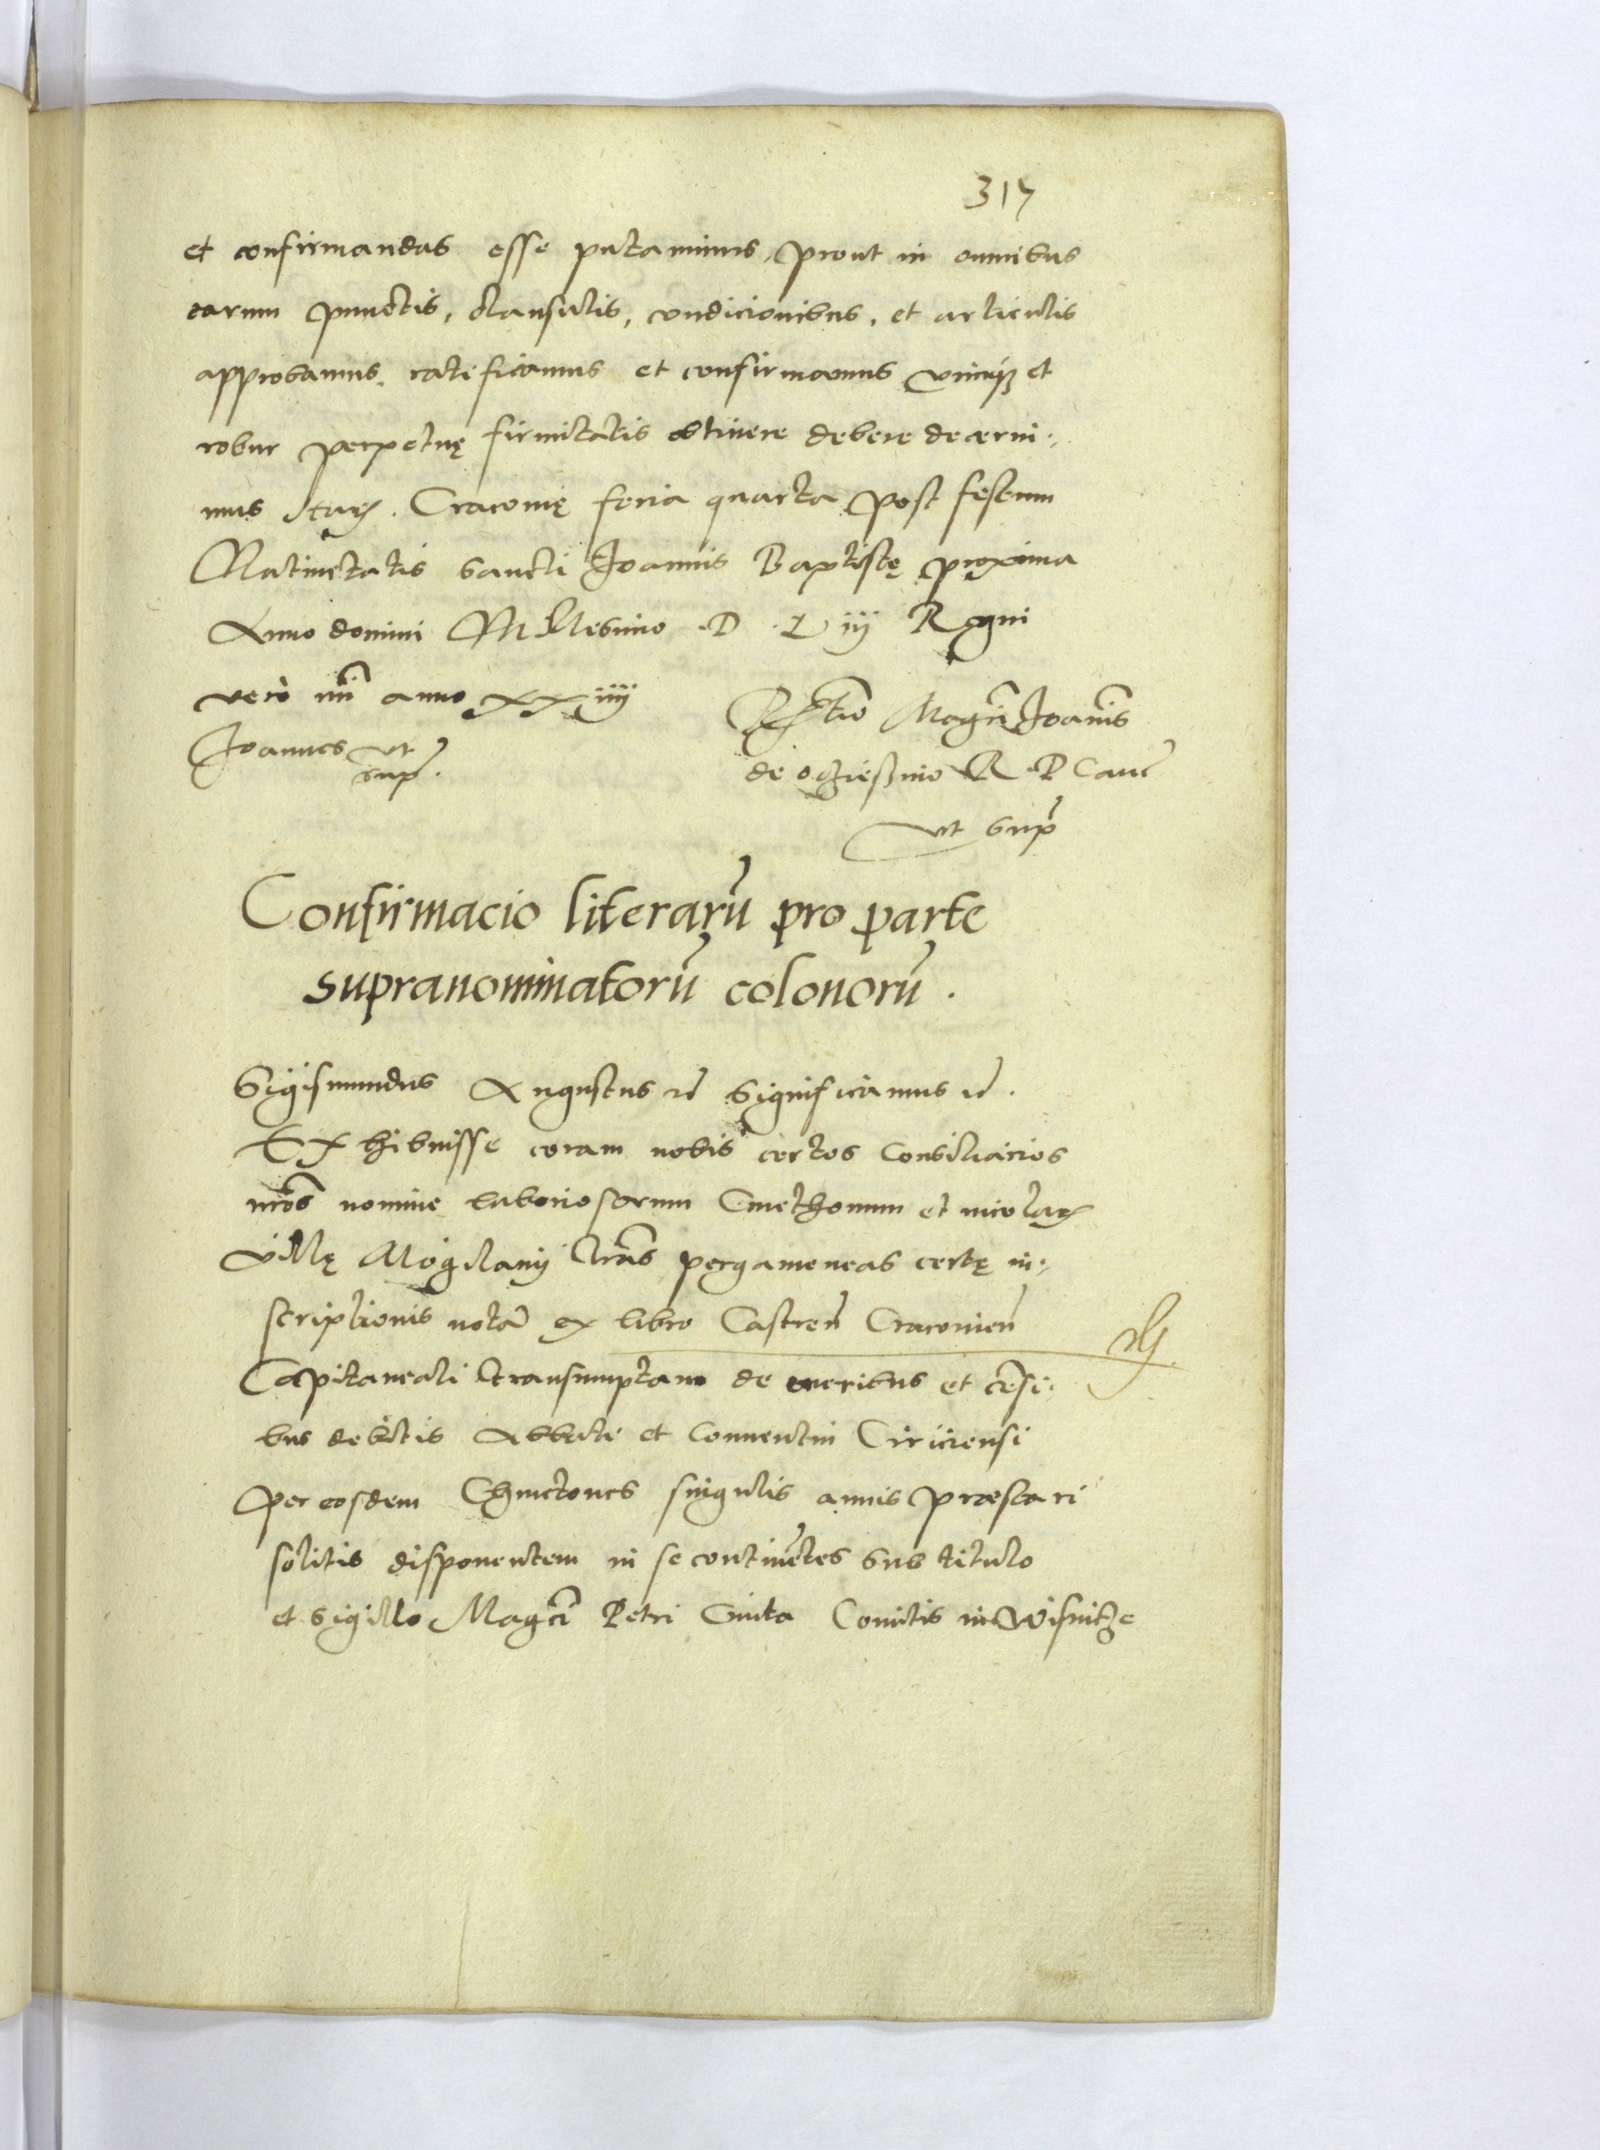 317
et confirmandas esse putauimus, prout in omnibus
earum punctis, clausulis, condicionibus, et articulis
approbamus, ratificamus et confirmamus vimq3 et
robur perpetuę firmitatis obtinere debere decerni-
mus Cracouię feria quarta post festum
Natiuitatis sancti Joannis Baptistę proxima
Anno domini Millesimo .D. L iij Regni
vero nri anno xxiiij
Joannes vt
sup.
Rtio Magci Joanis
de ocziesszino R P Canc
vt supr
Confirmacio literarū pro parte
supranominatorū colonorū.
Sigismundus Augustus rc Significamus rc.
Exhibuisse coram nobis certos Consiliarios
nros nomine laboriosorum Cmethonum et incolar
villę Mogilany lras pergameneas certę in-
scriptionis notā ex libro Castren Cracouien
Capitaneali transumptam de oneribus et cēsi-
bus debitis Abbati et Conuentui Ciriciensi
per eosdem Chmetones singulis annis praestari
solitis disponentem in se continētes sub titulo
et sigillo Magci Petri Cmita Comitis in Wisnicze